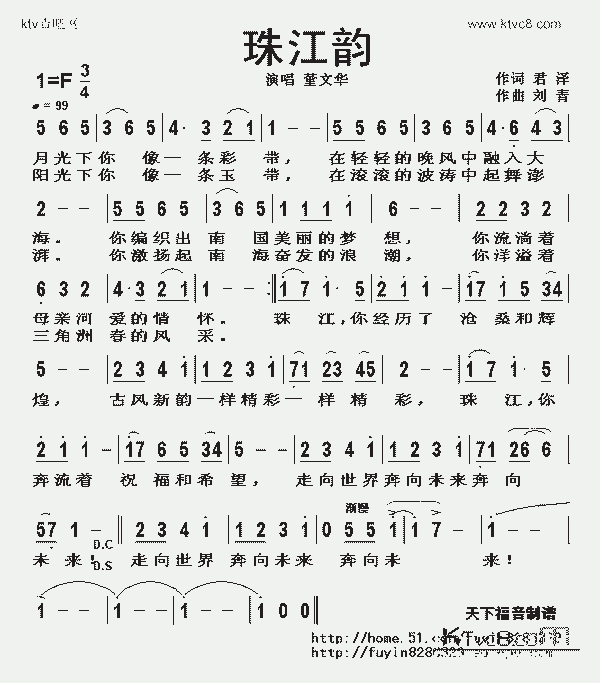 www.ktvc8.com
珠江韵
1=F 3/4
演唱 董文华
作词 君泽
作曲 刘青
= 99
5 6 5 | 3 6 5 | 4· 3 2 1 | 1 - - | 5 5 6 5 | 3 6 5 | 4· 6 4 3 |
月光下你 像一条彩 带， 在轻轻的晚风中融入大
阳光下你 像一条玉 带， 在滚滚的波涛中起舞澎
2 - - | 5 5 6 5 | 3 6 5 | 1 1 1 1 | 6 - - | 2 2 3 2 |
海。 你编织出 南 国美丽的梦 想， 你流淌着
湃。 你激扬起 南 海奋发的浪 潮， 你洋溢着
6 3 2 | 4·3 2 1 | 1 - - :|| 1 7 1· 5 | 2 1 1 - | 17 1 5 34 |
母亲河 爱的情 怀。 珠 江，你经历了 沧 桑和辉
三角洲 春的风 采。
5 - - | 2 3 4 1 | 1 2 3 1 | 71 23 45 | 2 - - | 1 7 1· 5 |
煌， 古风新韵一样精彩一 样 精 彩， 珠 江，你
2 1 1 - | 17 6 5 34 | 5 - - | 2 3 4 1 | 1 2 3 1 | 71 26 6 |
奔流着 祝 福和希 望， 走向世界奔向未来奔 向
渐慢
57 1 - || 2 3 4 1 | 1 2 3 1 | 0 5 5 1 | 1 7 - | 1 - - |
未 来！ 走向世界 奔向未来 奔向未 来！
D.C
D.S
1 - - | 1 - - | 1 - - | 1 0 0 ||
天下福音制谱